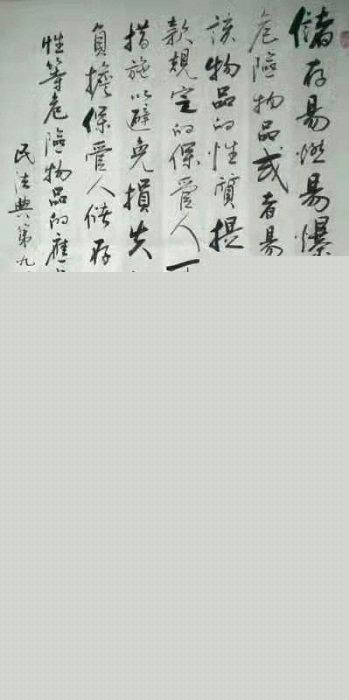 儲存易燃易爆
危險物品或者易
該物品的性質提
款規定的保管人
措施以避免損失
負擔保管人儲存
性等危險物品的應
民法典第九